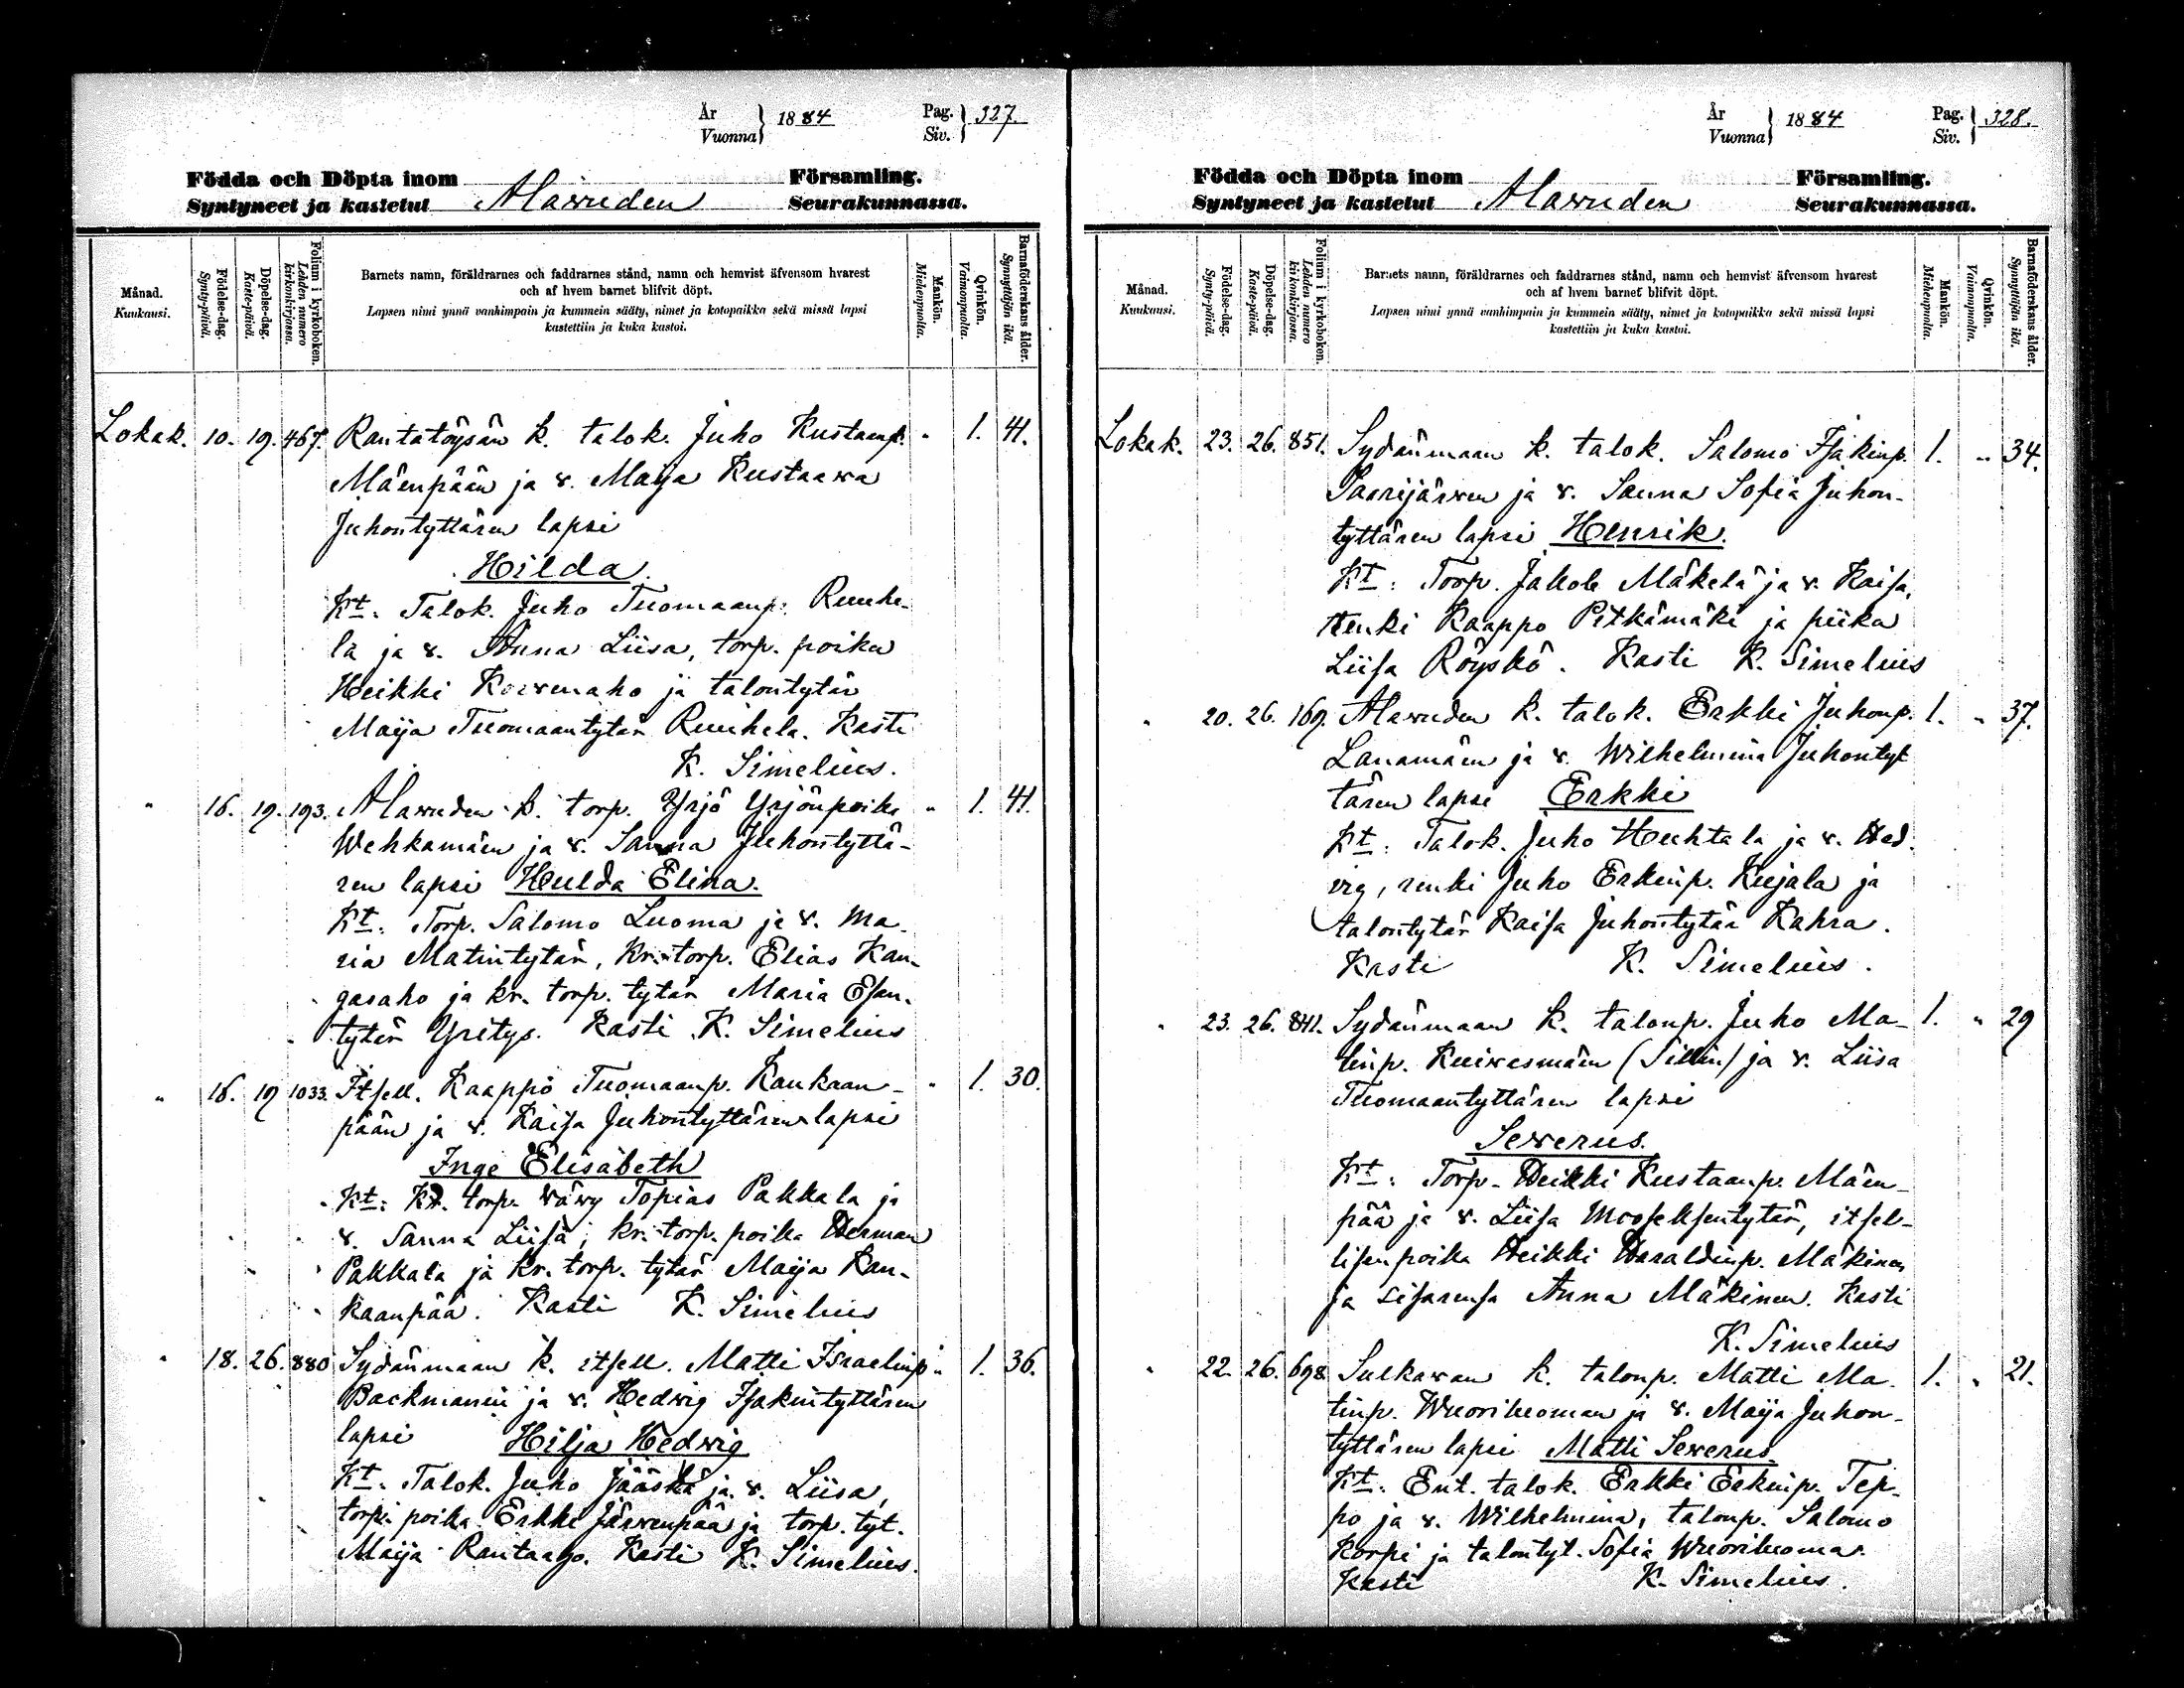 År
Vuonna } 1884
Pag.
Siv. } 327.
Födda och Döpta inom Församling.
Syntyneet ja kastetut Alawuden Seurakunnassa.
Månad.
Kuukausi.
Födelse-dag.
Synty-päivä.
Döpelse-dag.
Kaste-päivä.
Folium i kyrkoboken.
Lehden numero kirkonkirjassa.
Barnets namn, föräldrarnes och faddrarnes stånd, namn och hemvist äfvensom hvarest
och af hvem barnet blifvit döpt.
Lapsen nimi ynnä vanhimpain ja kummein sääty, nimet ja kotopaikka sekä missä lapsi
kastettiin ja kuka kastoi.
Mankön.
Miehenpuolta.
Qvinkön.
Vaimonpuolta.
Barnaföderskans ålder.
Synnyttäjän ikä.
Lokak. 10. 19. 467. Rantatöysän k. talok. Juho Kustaanp. " 1. 41.
Mäenpään ja v. Maija Kustaawa
Juhontyttären lapsi
Hilda.
Kt. Talok. Juho Tuomaanp. Ruuhe-
la ja v. Anna Liisa, torp. poika
Heikki Korwenaho ja talontytär
Maija Tuomaantytär Ruuhela. Kasti
K. Simelius.
" 16. 19. 193. Alawuden k. torp. Yrjö Yrjönpoika " 1. 41.
Wehkamäen ja v. Sanna Juhontyttä-
ren lapsi Hulda Elina.
Kt. Torp. Salomo Luoma ja v. Ma-
ria Matintytär, kr. torp. Elias Kan-
gasaho ja kr. torp. tytär Maria Esan-
tytär Yritys. Kasti K. Simelius
" 16. 19 1033. Itsell. Kaappo Tuomaanp. Kankaan- " 1. 30.
pään ja v. Kaisa Juhontyttären lapsi
Inge Elisabeth
Kt: Kr. torp. wäwy Topias Pakkala ja
v. Sanna Liisa, kr. torp. poika Herman
Pakkala ja kr. torp. tytär Maija Kan-
kaanpää. Kasti K. Simelius
" 18. 26. 880 Sydänmaan k. itsell. Matti Israelinp " 1. 36.
Backmanin ja v. Hedwig Isakintyttären
lapsi Hilja Hedwig
Kt. Talok. Juho Jääskä ja v. Liisa,
torp. poika Erkki Järwenpää ja torp. tyt.
Maija Rantaaho. Kasti K. Simelius.
År
Vuonna } 1884
Pag.
Siv. } 328.
Födda och Döpta inom Församling.
Syntyneet ja kastetut Alawuden Seurakunnassa.
Månad.
Kuukausi.
Födelse-dag.
Synty-päivä.
Döpelse-dag.
Kaste-päivä.
Folium i kyrkoboken.
Lehden numero kirkonkirjassa.
Barnets namn, föräldrarnes och faddrarnes stånd, namn och hemvist äfvensom hvarest
och af hvem barnet blifvit döpt.
Lapsen nimi ynnä vanhimpain ja kummein sääty, nimet ja kotopaikka sekä missä lapsi
kastettiin ja kuka kastoi.
Mankön.
Miehenpuolta.
Qvinkön.
Vaimonpuolta.
Barnaföderskans ålder.
Synnyttäjän ikä.
Lokak. 23. 26. 851. Sydänmaan k. talok. Salomo Isakinp. 1. " 34.
Saarijärwen ja v. Sanna Sofia Juhon-
tyttären lapsi Henrik.
Kt: Torp. Jakob Mäkelä ja v. Kaisa,
renki Kaappo Pitkämäki ja piika
Liisa Röyskö. Kasti K. Simelius
" 20. 26. 169. Alawuden k. talok. Erkki Juhonp. 1. " 37.
Lanamäen ja v. Wilhelmina Juhontyt
tären lapsi Erkki
Kt: Talok. Juho Huhtala ja v. Hed.
vig, renki Juho Erkinp. Kujala ja
talontytär Kaisa Juhontytär Kahra.
Kasti K. Simelius.
" 23. 26. 841. Sydänmaan k. talonp. Juho Ma- 1. " 29
tinp. Kuiwasmäen (Sillin) ja v. Liisa
Tuomaantyttären lapsi
Sewerus.
Kt: Torp. Heikki Kustaanp. Mäen-
pää ja v. Liisa Mooseksentytär, itsel-
lisen poika Heikki Haraldinp. Mäkinen
ja sisarensa Anna Mäkinen. Kasti
K. Simelius
" 22. 26. 698. Sulkawan k. talonp. Matti Ma- 1. " 21.
tinp. Wuoriluoman ja v. Maija Juhon-
tyttären lapsi Matti Sewerus.
Kt. Ent. talok. Erkki Erkinp. Tep-
po ja v. Wilhelmina, talonp. Salomo
Korpi ja talontyt. Sofia Wuoriluoma.
Kasti K. Simelius.